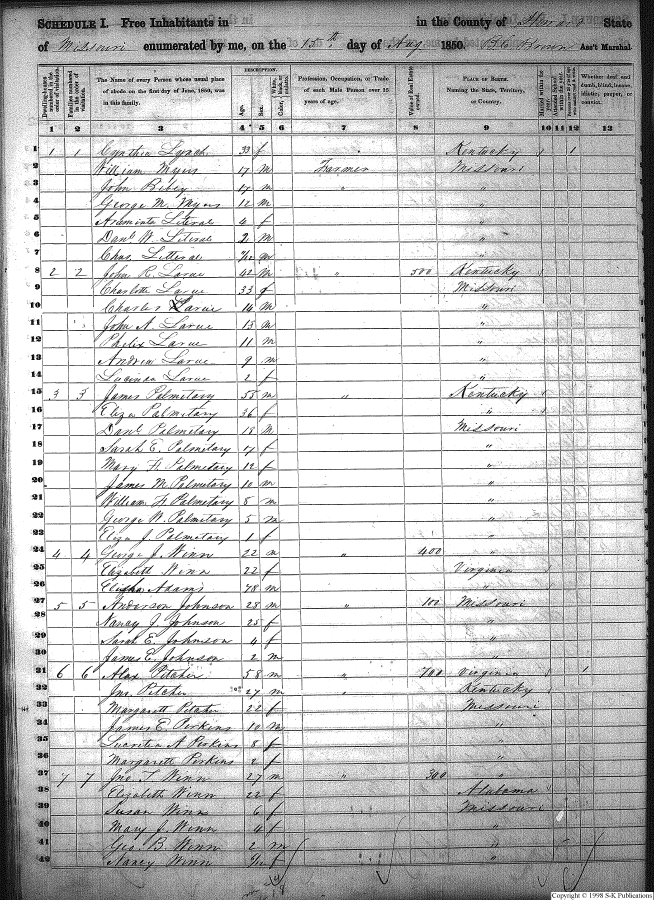 SCHEDULE I. Free Inhabitants in in the County of Henry State
of Missouri enumerated by me, on the 15th day of Aug 1850. Ass't Marshal
Dwelling-houses numbered in the order of visitation.
Families numbered in the order of visitation.
The Name of every Person whose usual place of abode on the first day of June, 1850, was in this family.
DESCRIPTION.
Age.
Sex.
White, black, or mulatto.
Color,
Profession, Occupation, or Trade of each Male Person over 15 years of age.
Value of Real Estate owned.
PLACE OF BIRTH.
Naming the State, Territory, or Country.
Married within the year.
Attended School within the year.
Whether deaf and dumb, blind, insane, idiotic, pauper, or convict.
1 2 3 4 5 6 7 8 9 10 11 12 13
1 1 1 Cynthia Lynch 33 f Kentucky 1
2 William Myers 17 m Farmer Missouri
3 John Bibey 17 m " "
4 George M. Myers 12 m "
5 Araminta Literal 4 f "
6 Danl W. Literal 2 m "
7 Chas. Litteral /12 m "
8 2 2 John R. Larue 42 m " 500 Kentucky
9 Charlotte Larue 33 f Missouri
10 Charles Larue 14 m "
11 John A. Larue 13 m "
12 Phelix Larue 11 m "
13 Andrew Larue 9 m "
14 Lucinda Larue 2 f "
15 3 3 James Palmetary 55 m " Kentucky
16 Eliza Palmetary 36 f "
17 Danl Palmetary 18 m Missouri
18 Sarah E. Palmetary 17 f "
19 Mary F. Palmetary 12 f "
20 James M. Palmetary 10 m "
21 William H. Palmetary 8 m "
22 George W. Palmetary 5 m "
23 Eliza J. Palmetary 1 f "
24 4 4 George J. Winn 22 m " 400 "
25 Elizabeth Winn 22 f Virginia
26 Elisha Adams 78 m "
27 5 5 Anderson Johnson 28 m " 100 Missouri
28 Nancy J. Johnson 25 f "
29 Sarah E. Johnson 4 f "
30 James E. Johnson 2 m "
31 6 6 Alax Pitcher 58 m " 700 Virginia 1
32 Jno. Pitcher 27 m " Kentucky
33 Margarett Pitcher 22 f Missouri
34 James E. Perkins 10 m "
35 Lucretia A Perkins 8 f "
36 Margarett Perkins 2 f "
37 7 7 Jno. T. Winn 27 m " 300 "
38 Elizabeth Winn 22 f Alabama
39 Susan Winn 6 f Missouri
40 Mary J. Winn 4 f "
41 Geo. B. Winn 2 m "
42 Nancy Winn /12 f "
Copyright © 1998 S-K Publications